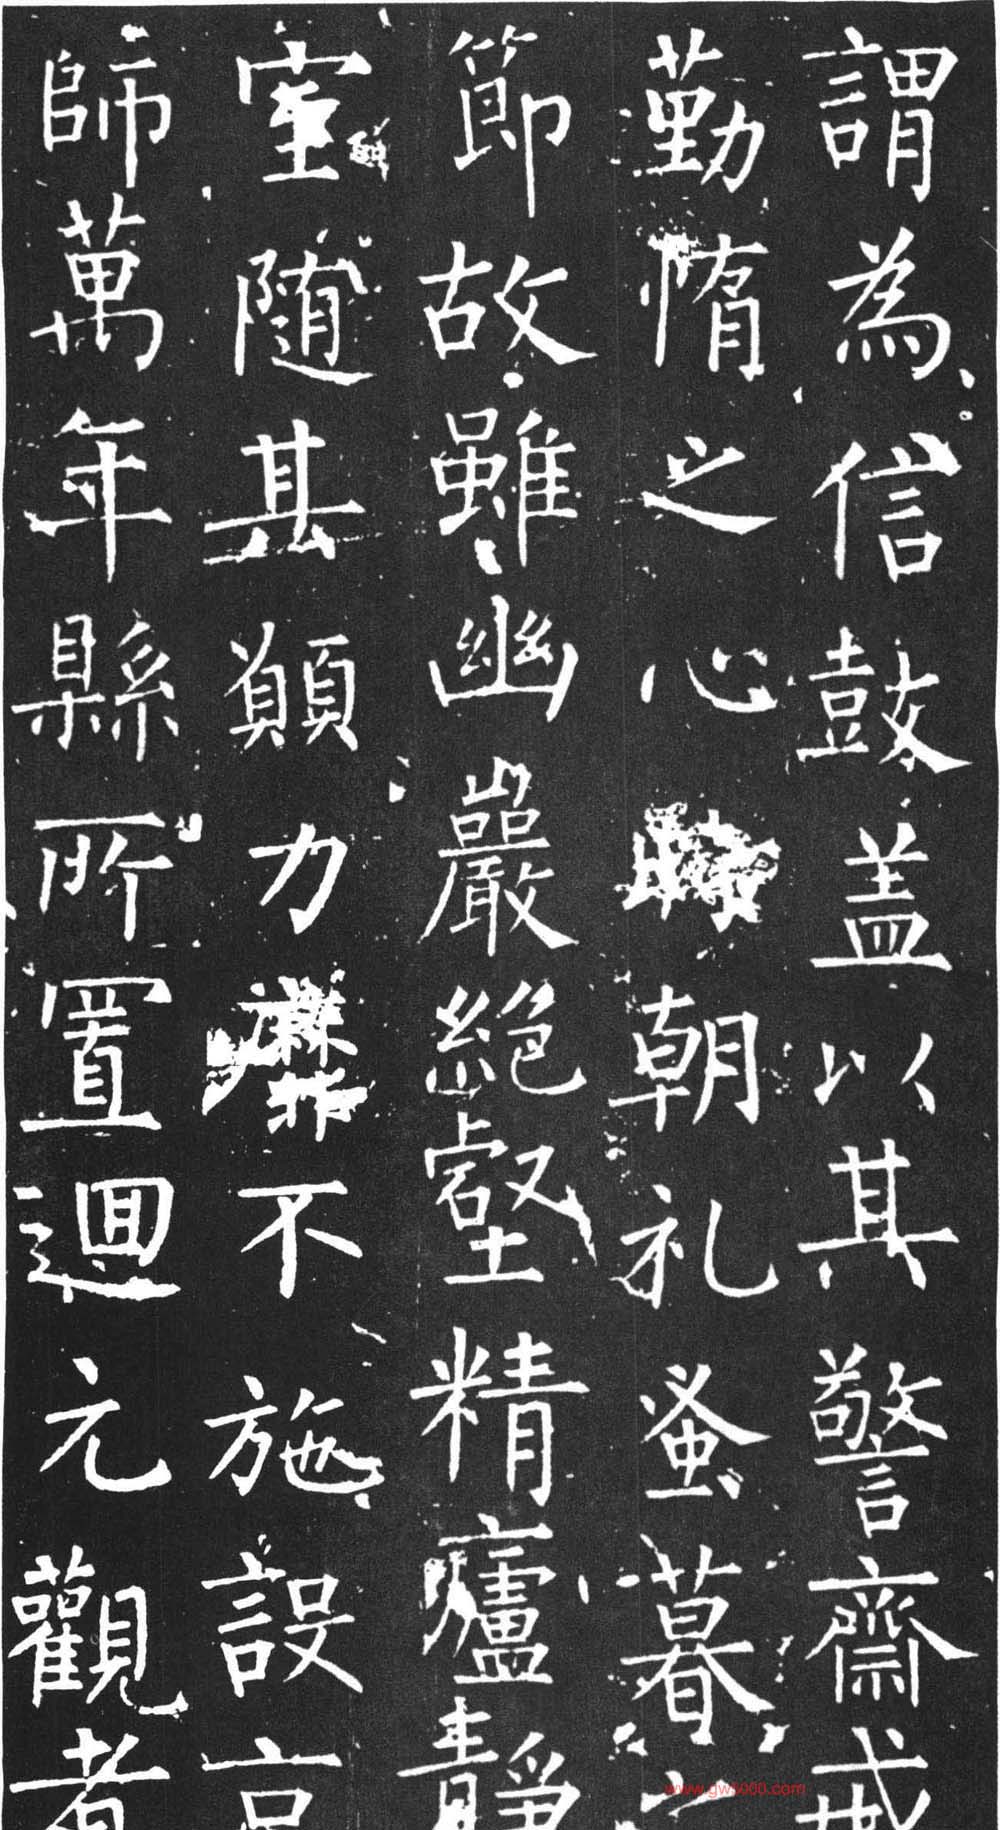 謂為信鼓盖以其警齋戒
勤惰之心時朝礼蚤暮之
節故雖幽嚴絕壑精廬靜
室随其願力靡不施設京
師萬年縣所置迴元觀者
www.gw5000.com